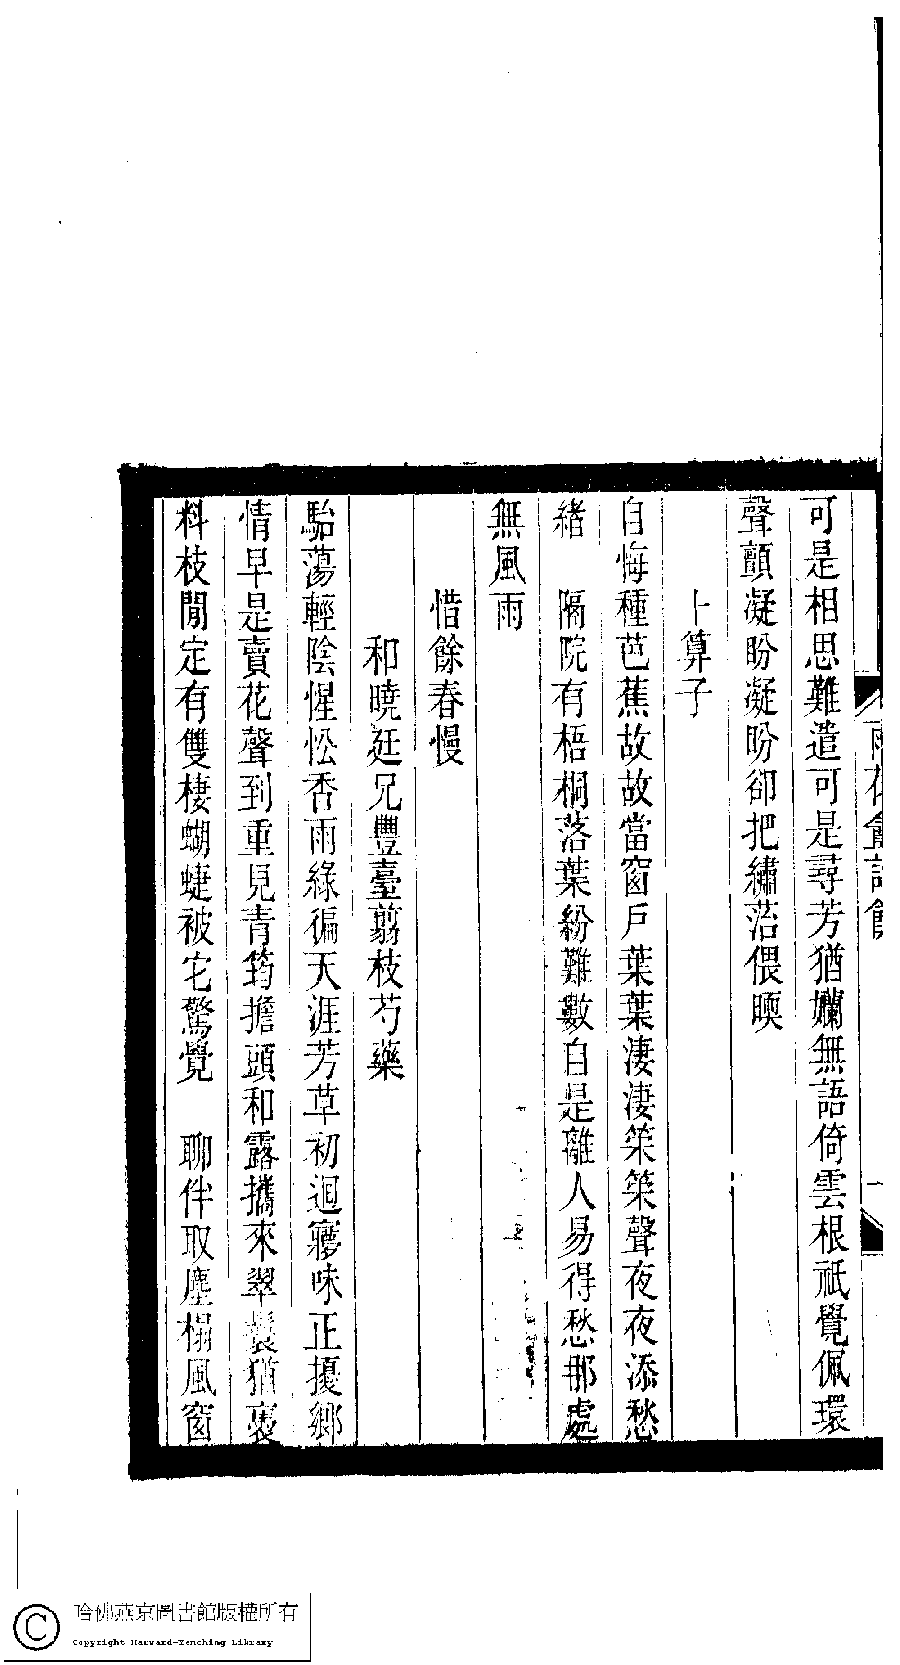 雨花盦詩餘
一
可是相思難遣可是尋芳猶嬾無語倚雲根祇覺佩環
聲顫凝盼凝盼卻把繡萡偎暝
卜算子
自悔種芭蕉故故當窗戶葉葉淒淒策策聲夜夜添愁
緒　隔院有梧桐落葉紛難數自是離人易得愁那處
無風雨
惜餘春慢
和曉廷兄豐臺翦枝芍藥
駘蕩輕陰惺忪杏雨綠徧天涯芳草初迴㝱味正擾鄉
情早是賣花聲到重見青筠擔頭和露攜來翠鬟猶裛
料枝閒定有雙棲蝴蜨被它驚覺　聊伴取塵榻風窗
哈佛燕京圖書館版權所有
Copyright Harvard-Yenching Library